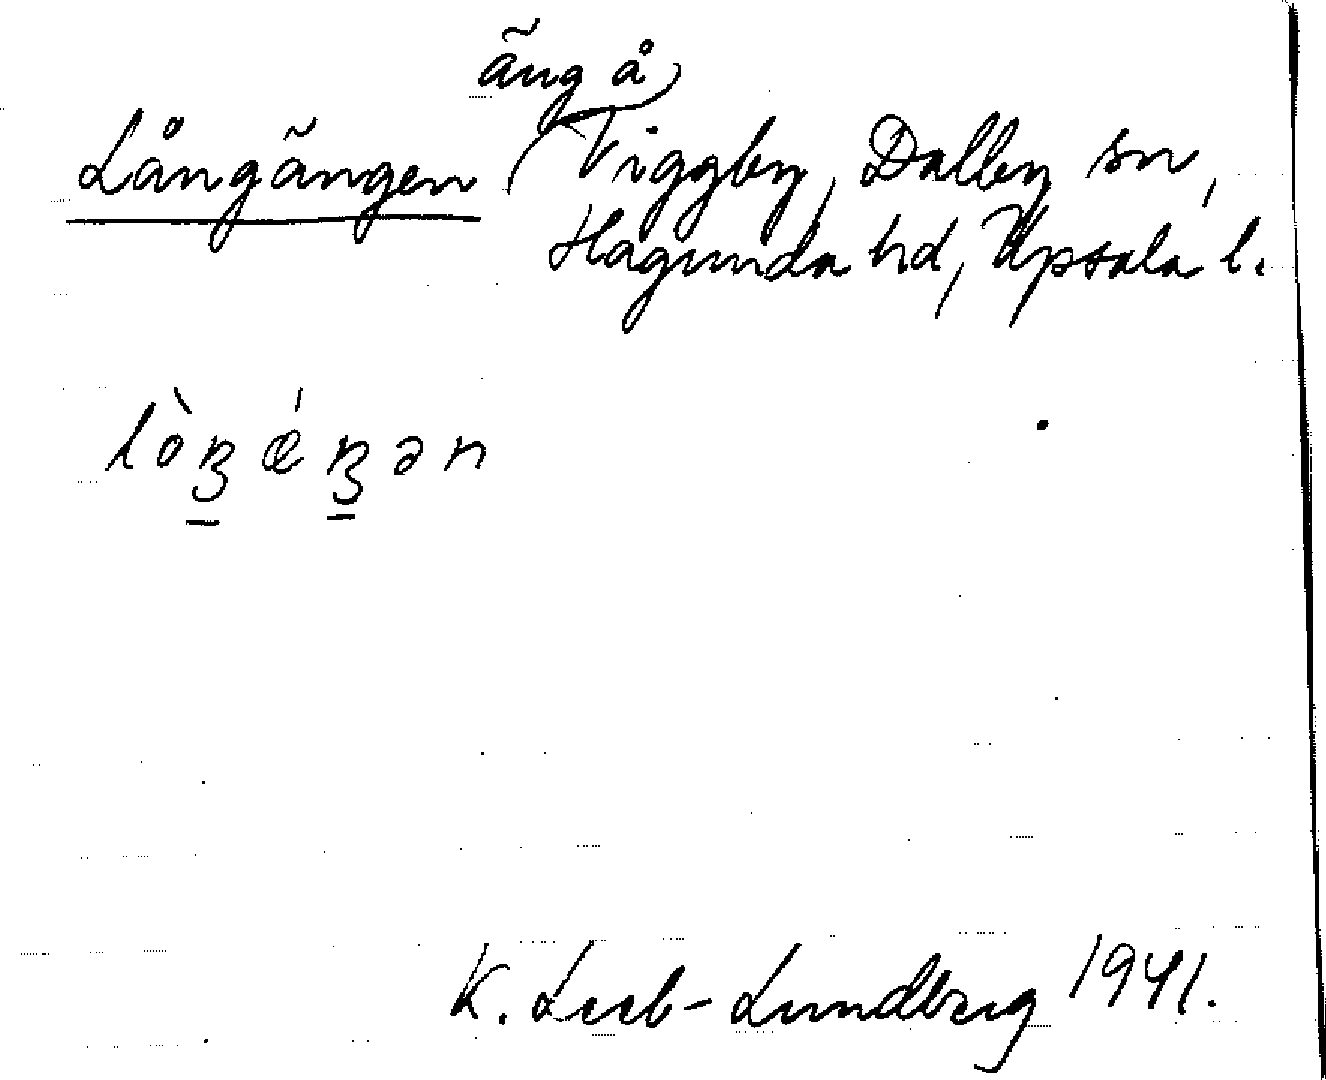 äng å
Långängen (Viggby, Dalby sn,
Hagunda hd, Upsala l.
lòŋǽŋən
K. Leeb-Lundberg 1941.